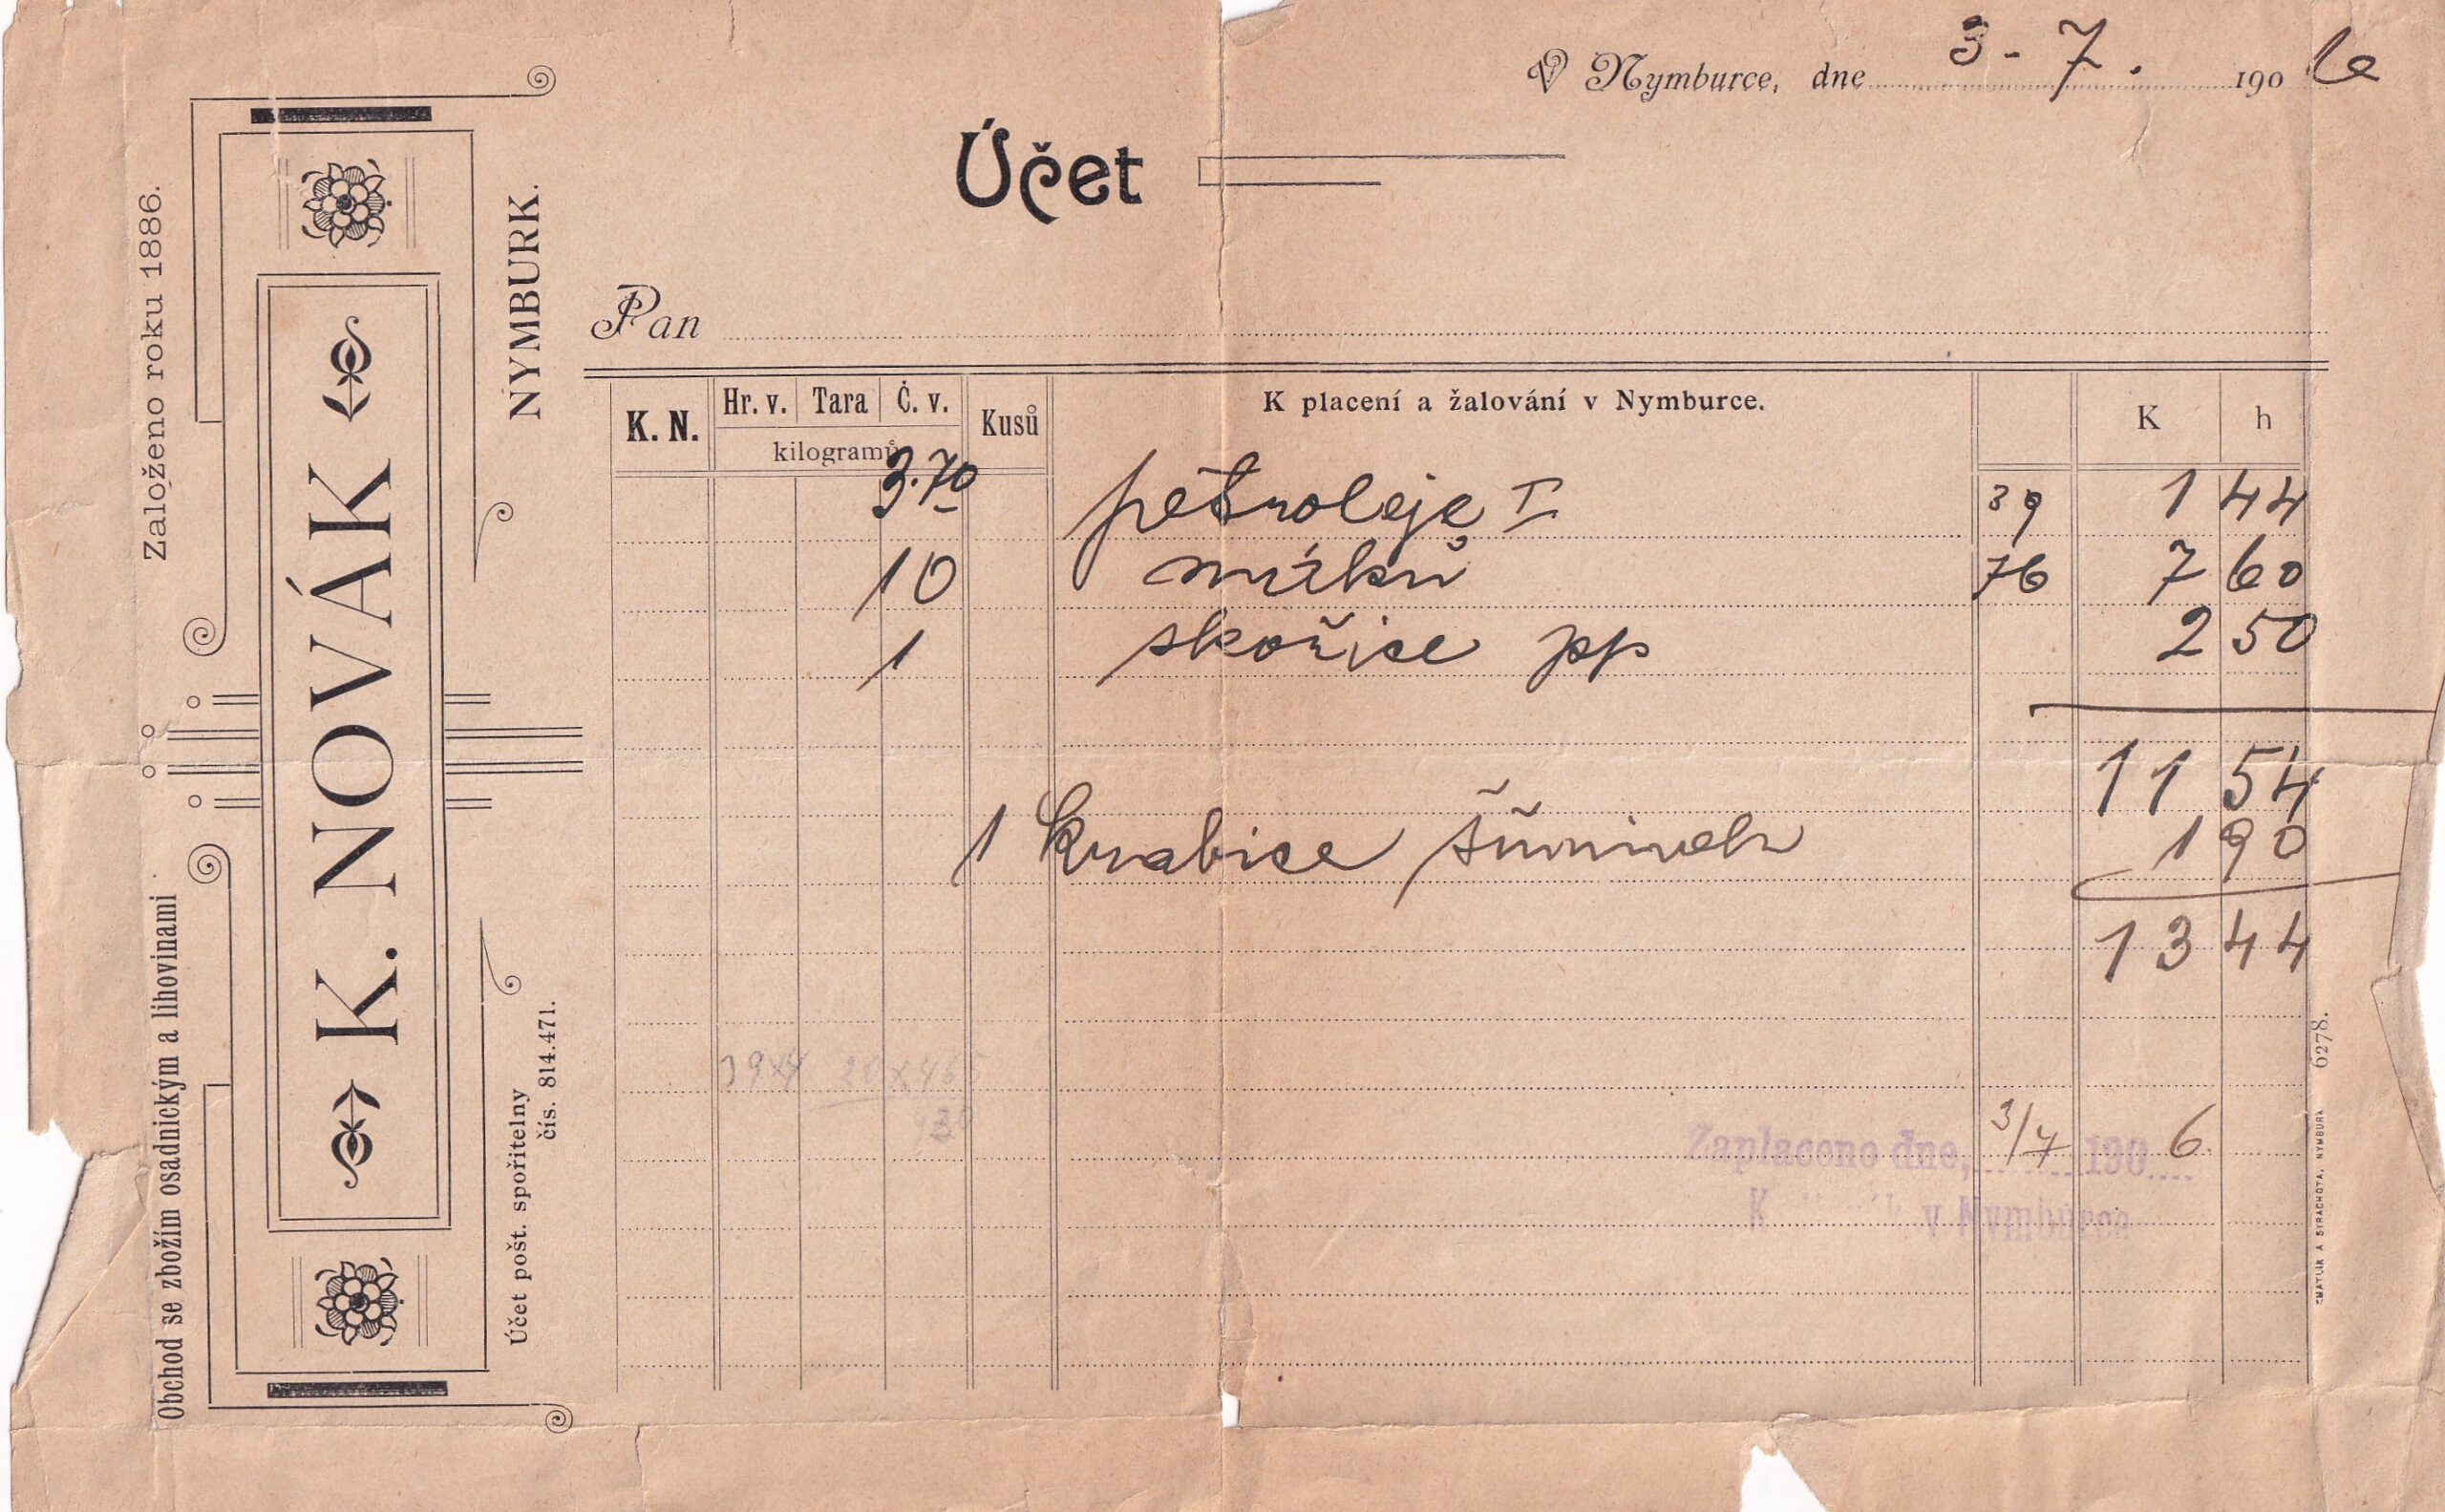 V Nymburce, dne 3-7. 1906
Účet
Založeno roku 1886.
K. NOVÁK
NYMBURK.
Obchod se zbožím osadnickým a lihovinami
Účet pošt. spořitelny
čís. 814.471.
Pan
K. N. Hr. v. Tara Č. v. Kusů K placení a žalování v Nymburce. K h
kilogramů
3.70 petroleje I 39 1 44
10 76 7 60
1 skořice pp 2 50
11 54
1 krabice 1 90
13 44
39x4 20x465
930
Zaplaceno dne, 3/7 190 6.
K v Nymburce
6278.